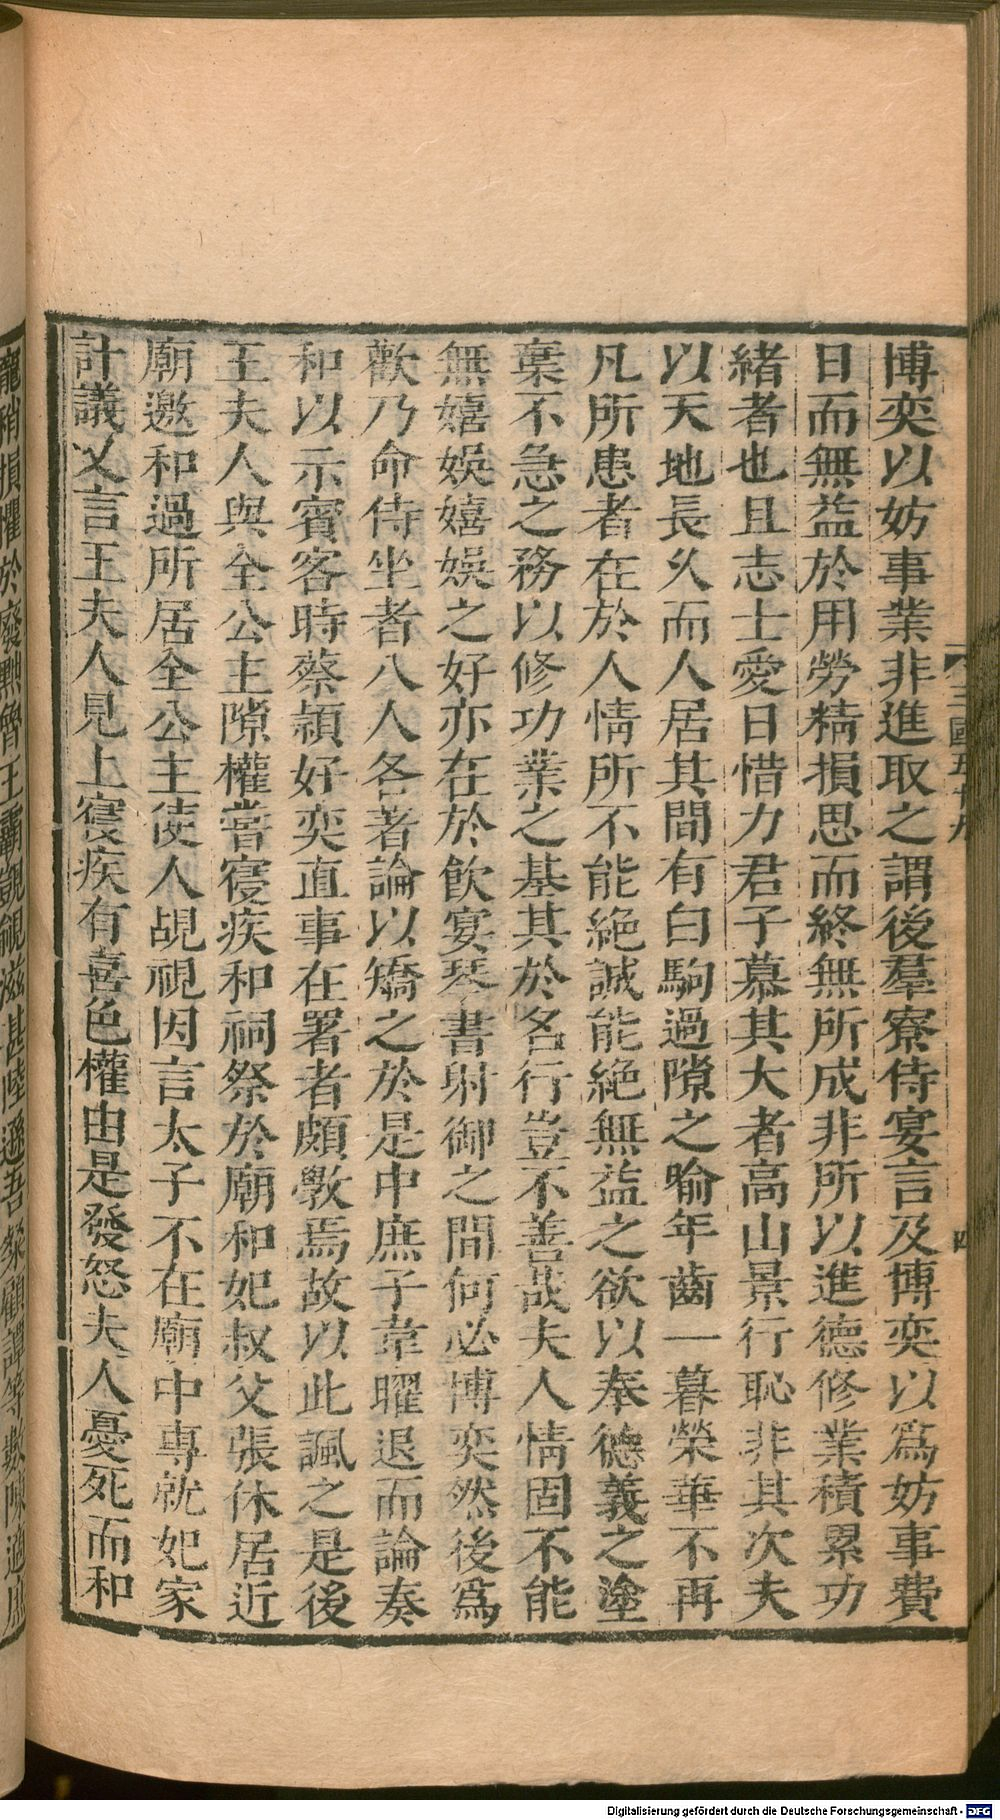 博奕以妨事業非進取之謂後羣寮侍宴言及博奕以爲妨事費
日而無益於用勞精損思而終無所成非所以進德修業積累功
緒者也且志士愛日惜力君子慕其大者高山景行恥非其次夫
以天地長久而人居其間有白駒過隙之喻年齒一暮榮華不再
凡所患者在於人情所不能絶誠能絶無益之欲以奉德義之塗
棄不急之務以修功業之基其於名行豈不善哉夫人情固不能
無嬉娛嬉娛之好亦在於飮宴琴書射御之間何必博奕然後爲
歡乃命侍坐者八人各著論以矯之於是中庶子韋曜退而論奏
和以示賓客時蔡頴好奕直事在署者頗斆焉故以此諷之是後
王夫人與全公主隙權嘗寑疾和祠祭於廟和妃叔父張休居近
廟邀和過所居全公主使人覘視因言太子不在廟中專就妃家
計議又言王夫人見上寑疾有喜色權由是發怒夫人憂死而和
寵稍損懼於廢黜魯王霸覬覦滋甚陸遜吾粲顧譚等數陳適庶
三國五十九
四
Digitalisierung gefördert durch die Deutsche Forschungsgemeinschaft - DFG